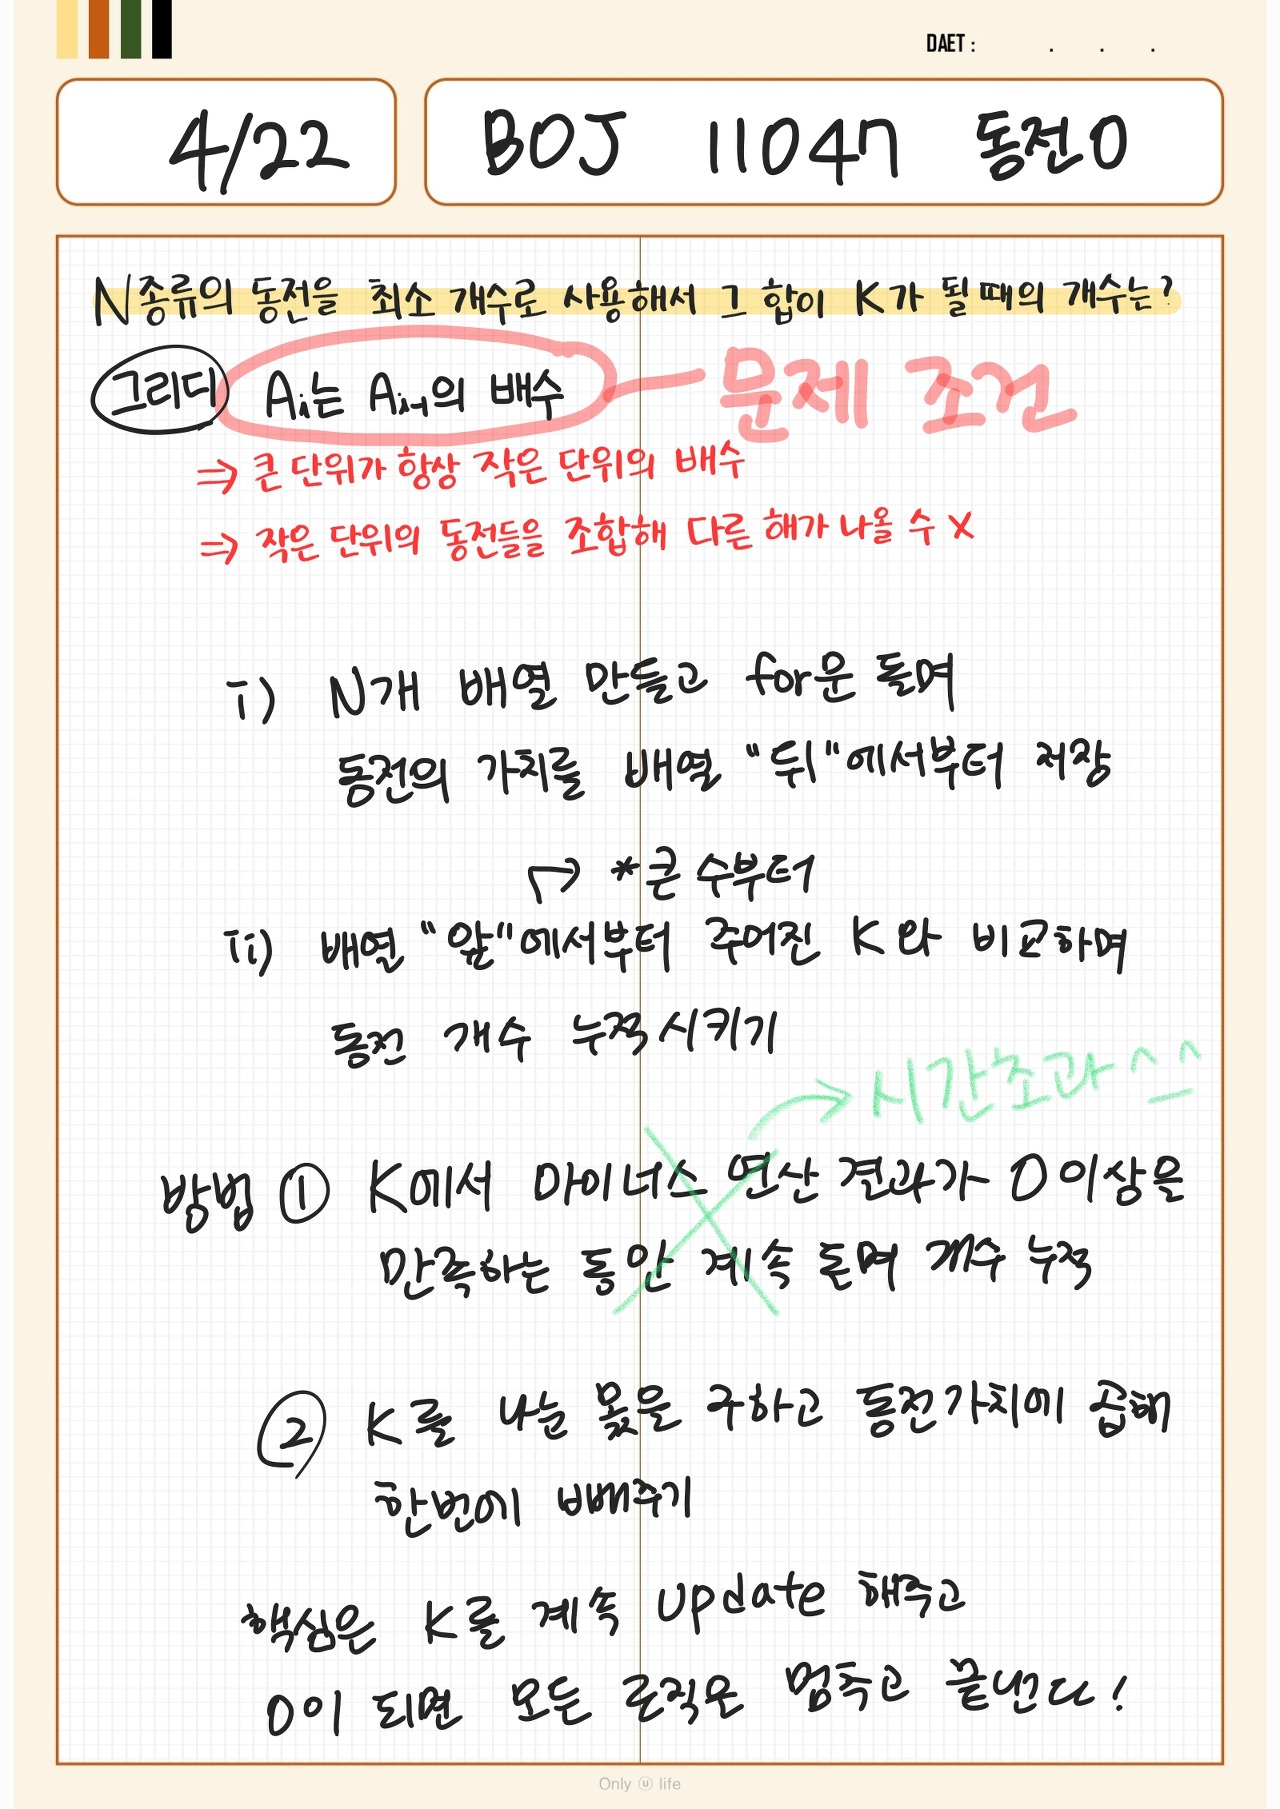 DAET : . . .
4/22
BOJ 11047 동전0
N종류의 동전을 최소 개수로 사용해서 그 합이 K가 될 때의 개수는?
그리디 Aᵢ는 Aᵢ₋₁의 배수 문제 조건
⇒ 큰 단위가 항상 작은 단위의 배수
⇒ 작은 단위의 동전들을 조합해 다른 해가 나올 수 X
i) N개 배열 만들고 for문 돌며
동전의 가치를 배열 "뒤"에서부터 저장
↱ *큰 수부터
ii) 배열 "앞"에서부터 주어진 K와 비교하며
동전 개수 누적시키기
→ 시간초과^_^
방법 ① K에서 마이너스 연산 결과가 0 이상을
만족하는 동안 계속 돌며 개수 누적
② K를 나눈 몫을 구하고 동전가치에 곱해
한번에 빼주기
핵심은 K를 계속 update 해주고
0이 되면 모든 로직은 멈추고 끝낸다!
Only ⓤ life